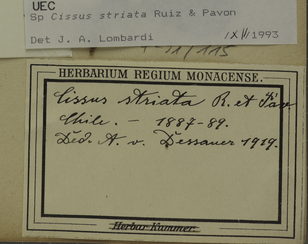 UEC
Sp Cissus striata Ruiz & Pavon
Det J. A. Lombardi IX/1993
11/115
HERBARIUM REGIUM MONACENSE.
Cissus striata R. et Pav.
Chile. — 1887-89.
Ded. A. v. Dessauer 1919.
Herbar Kummer.